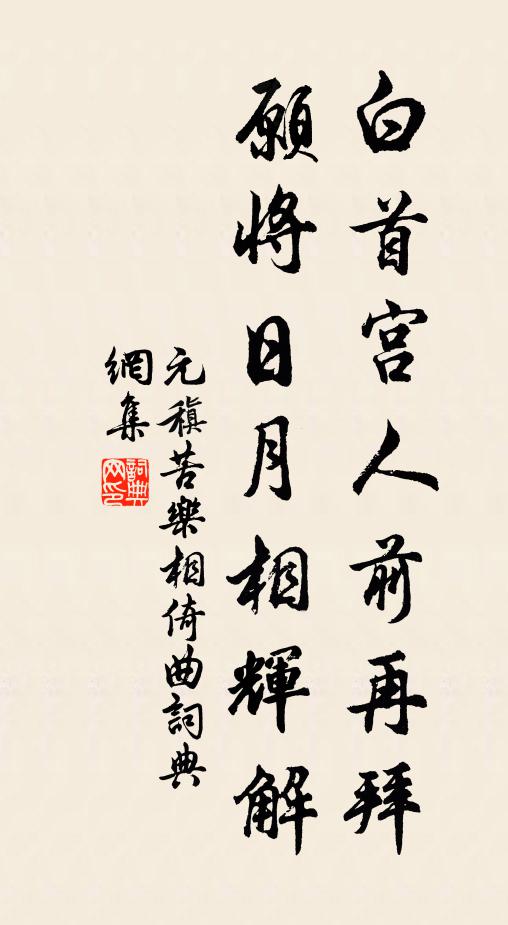 白首宮人前再拜
願將日月相輝解
元稹苦樂相倚曲詞典
網集
詞典網印